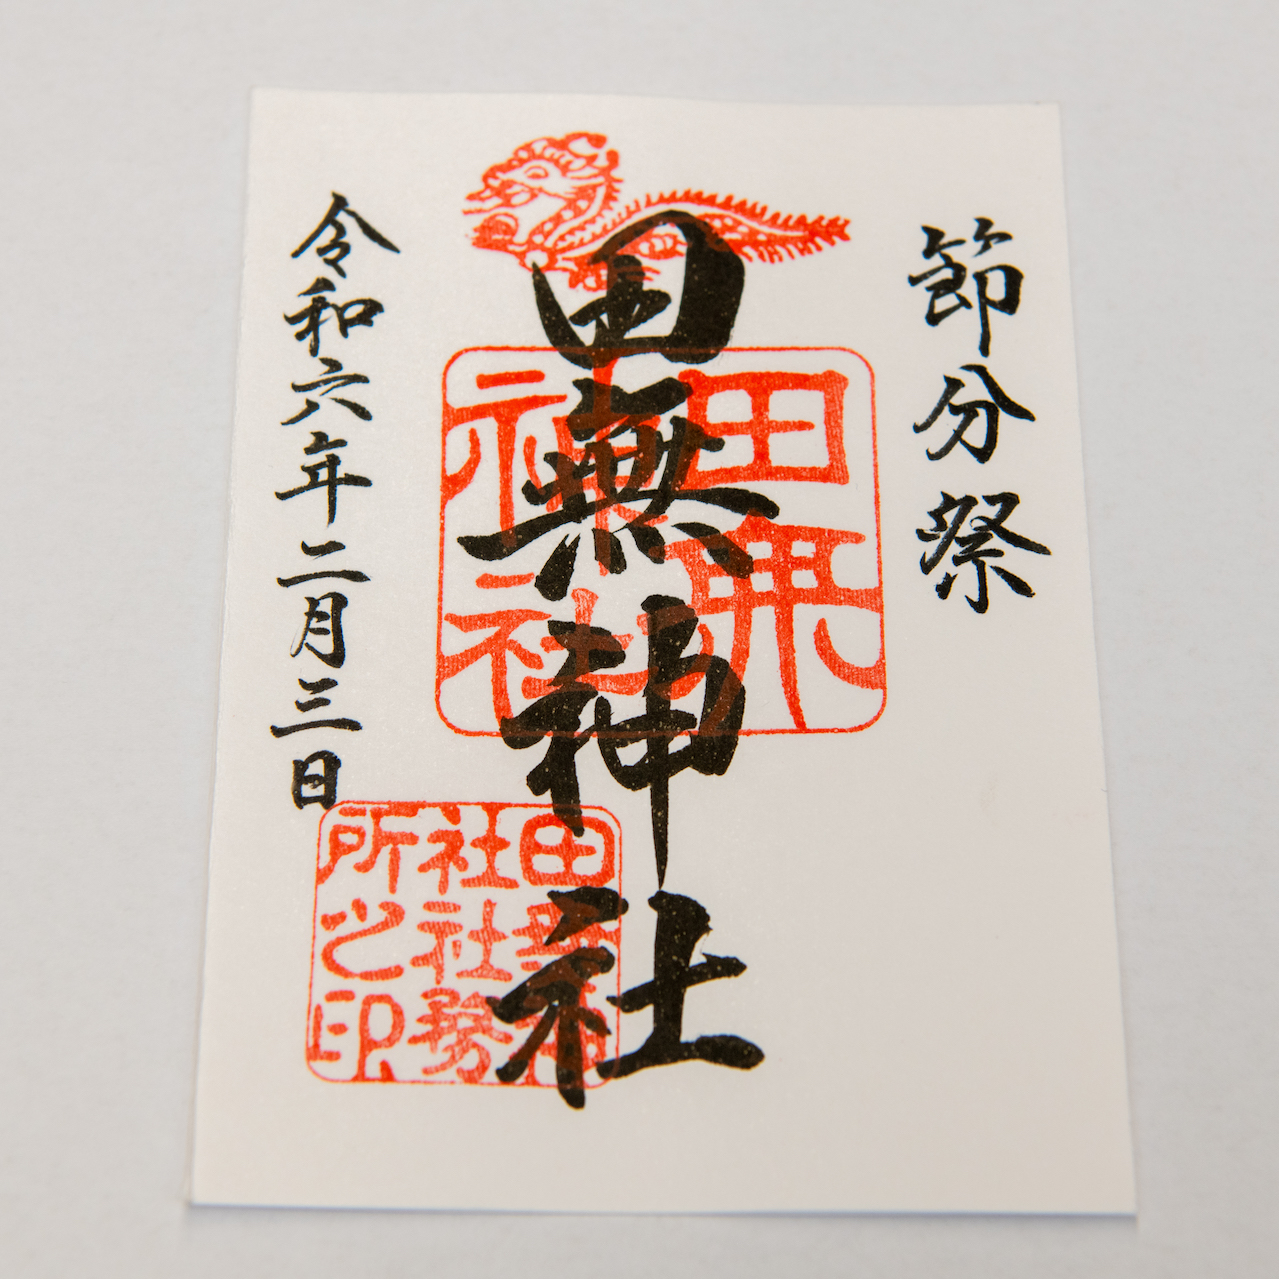 節分祭
田無神社
令和六年二月三日
田無
神社
田無神
社社務
所之印